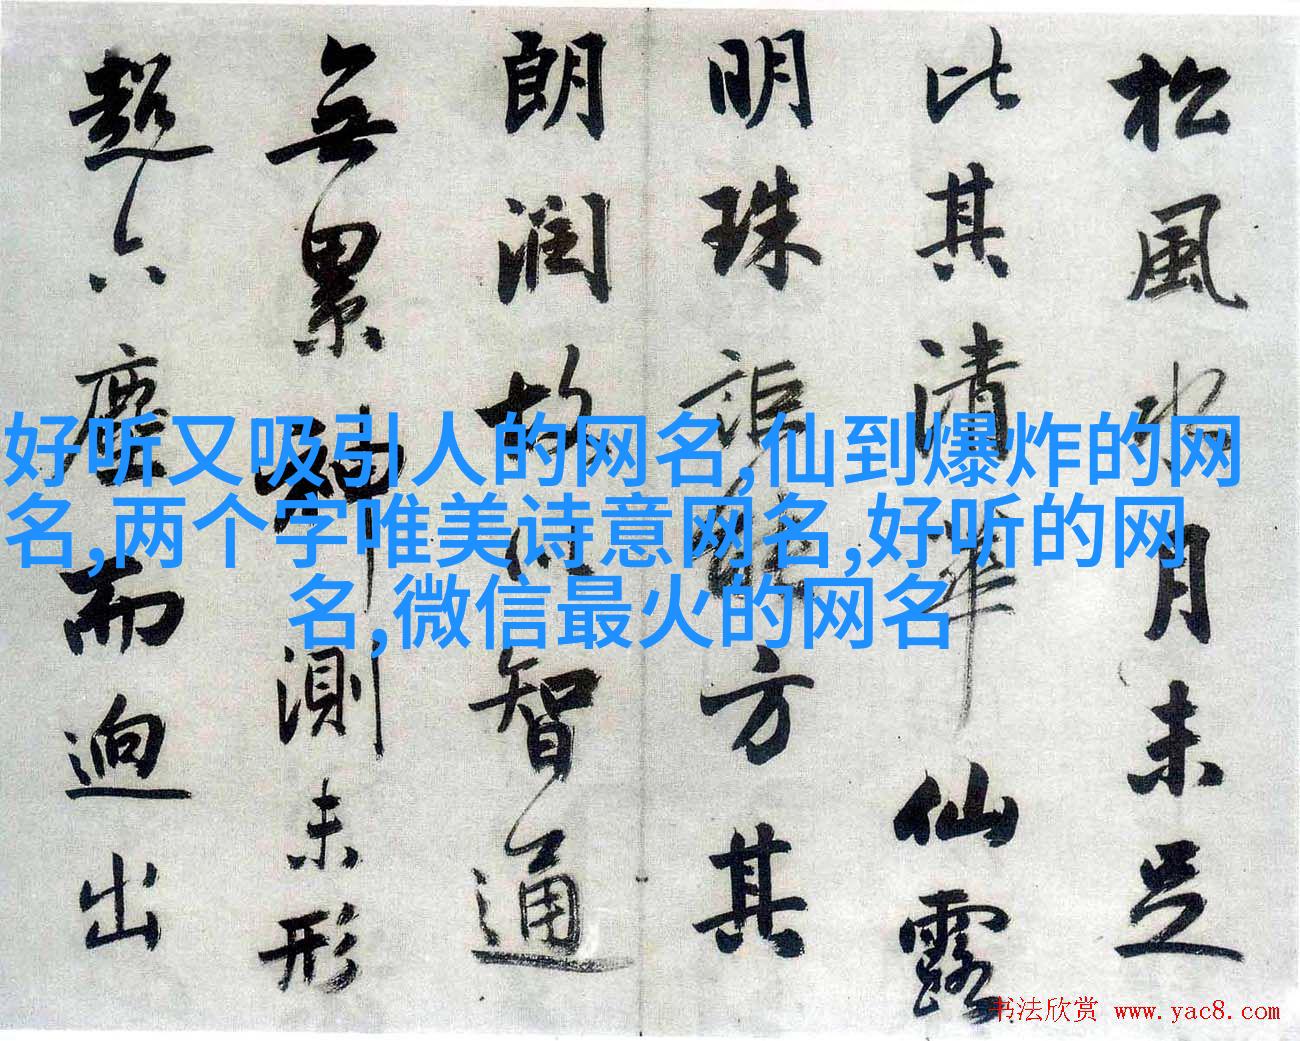 松風水月未足
比其清華仙露
明珠詎能方其
朗潤故以智通
無累神測未形
超六塵而迥出
好听又吸引人的网名,仙到爆炸的网
名,两个字唯美诗意网名,好听的网
名,微信最火的网名
书法欣赏 www.yac8.com